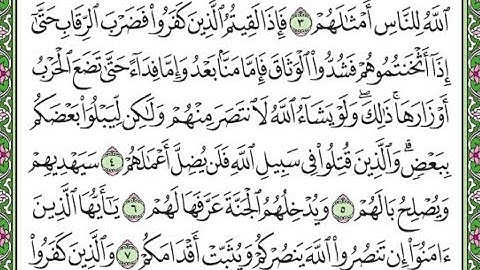 ٱللَّهُ لِلنَّاسِ أَمْثَٰلَهُمْ ٣ فَإِذَا لَقِيتُمُ ٱلَّذِينَ كَفَرُوا۟ فَضَرْبَ ٱلرِّقَابِ حَتَّىٰٓ
إِذَآ أَثْخَنتُمُوهُمْ فَشُدُّوا۟ ٱلْوَثَاقَ فَإِمَّا مَنًّۢا بَعْدُ وَإِمَّا فِدَآءً حَتَّىٰ تَضَعَ ٱلْحَرْبُ
أَوْزَارَهَا ۚ ذَٰلِكَ ۖ وَلَوْ يَشَآءُ ٱللَّهُ لَٱنتَصَرَ مِنْهُمْ وَلَٰكِن لِّيَبْلُوَا۟ بَعْضَكُم
بِبَعْضٍ ۗ وَٱلَّذِينَ قُتِلُوا۟ فِى سَبِيلِ ٱللَّهِ فَلَن يُضِلَّ أَعْمَٰلَهُمْ ٤ سَيَهْدِيهِمْ
وَيُصْلِحُ بَالَهُمْ ٥ وَيُدْخِلُهُمُ ٱلْجَنَّةَ عَرَّفَهَا لَهُمْ ٦ يَٰٓأَيُّهَا ٱلَّذِينَ
ءَامَنُوٓا۟ إِن تَنصُرُوا۟ ٱللَّهَ يَنصُرْكُمْ وَيُثَبِّتْ أَقْدَامَكُمْ ٧ وَٱلَّذِينَ كَفَرُوا۟